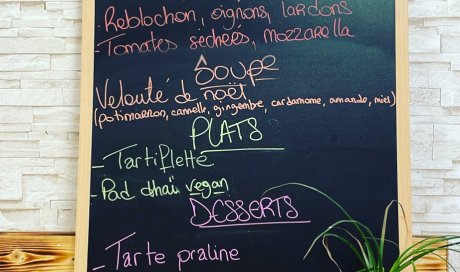 - Reblochon, oignons, lardons
- Tomates séchées, mozzarella
Soupe
Velouté de noël
(potimarron, cannelle, gingembre cardamome, amande, miel)
PLATS
- Tartiflette
- Pad thaï vegan
DESSERTS
- Tarte praline